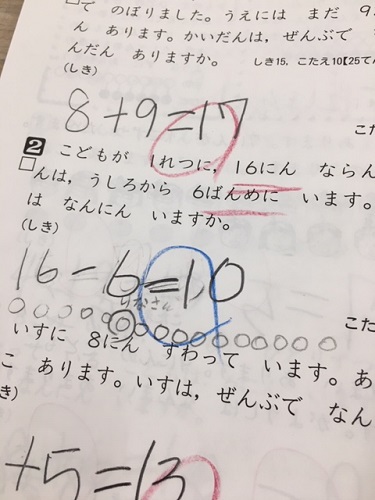 て のぼりました。うえには まだ 9
ん あります。かいだんは，ぜんぶで
んだん ありますか。
しき15，こたえ10【25てん
(しき)
8+9=17
こた
2 こどもが 1れつに，16にん ならん
んは，うしろから 6ばんめに います。
は なんにん いますか。
(しき)
16-6=10
りなさん
こた
いすに 8にん すわって います。あ
こ あります。いすは，ぜんぶで なん
き)
+5=13